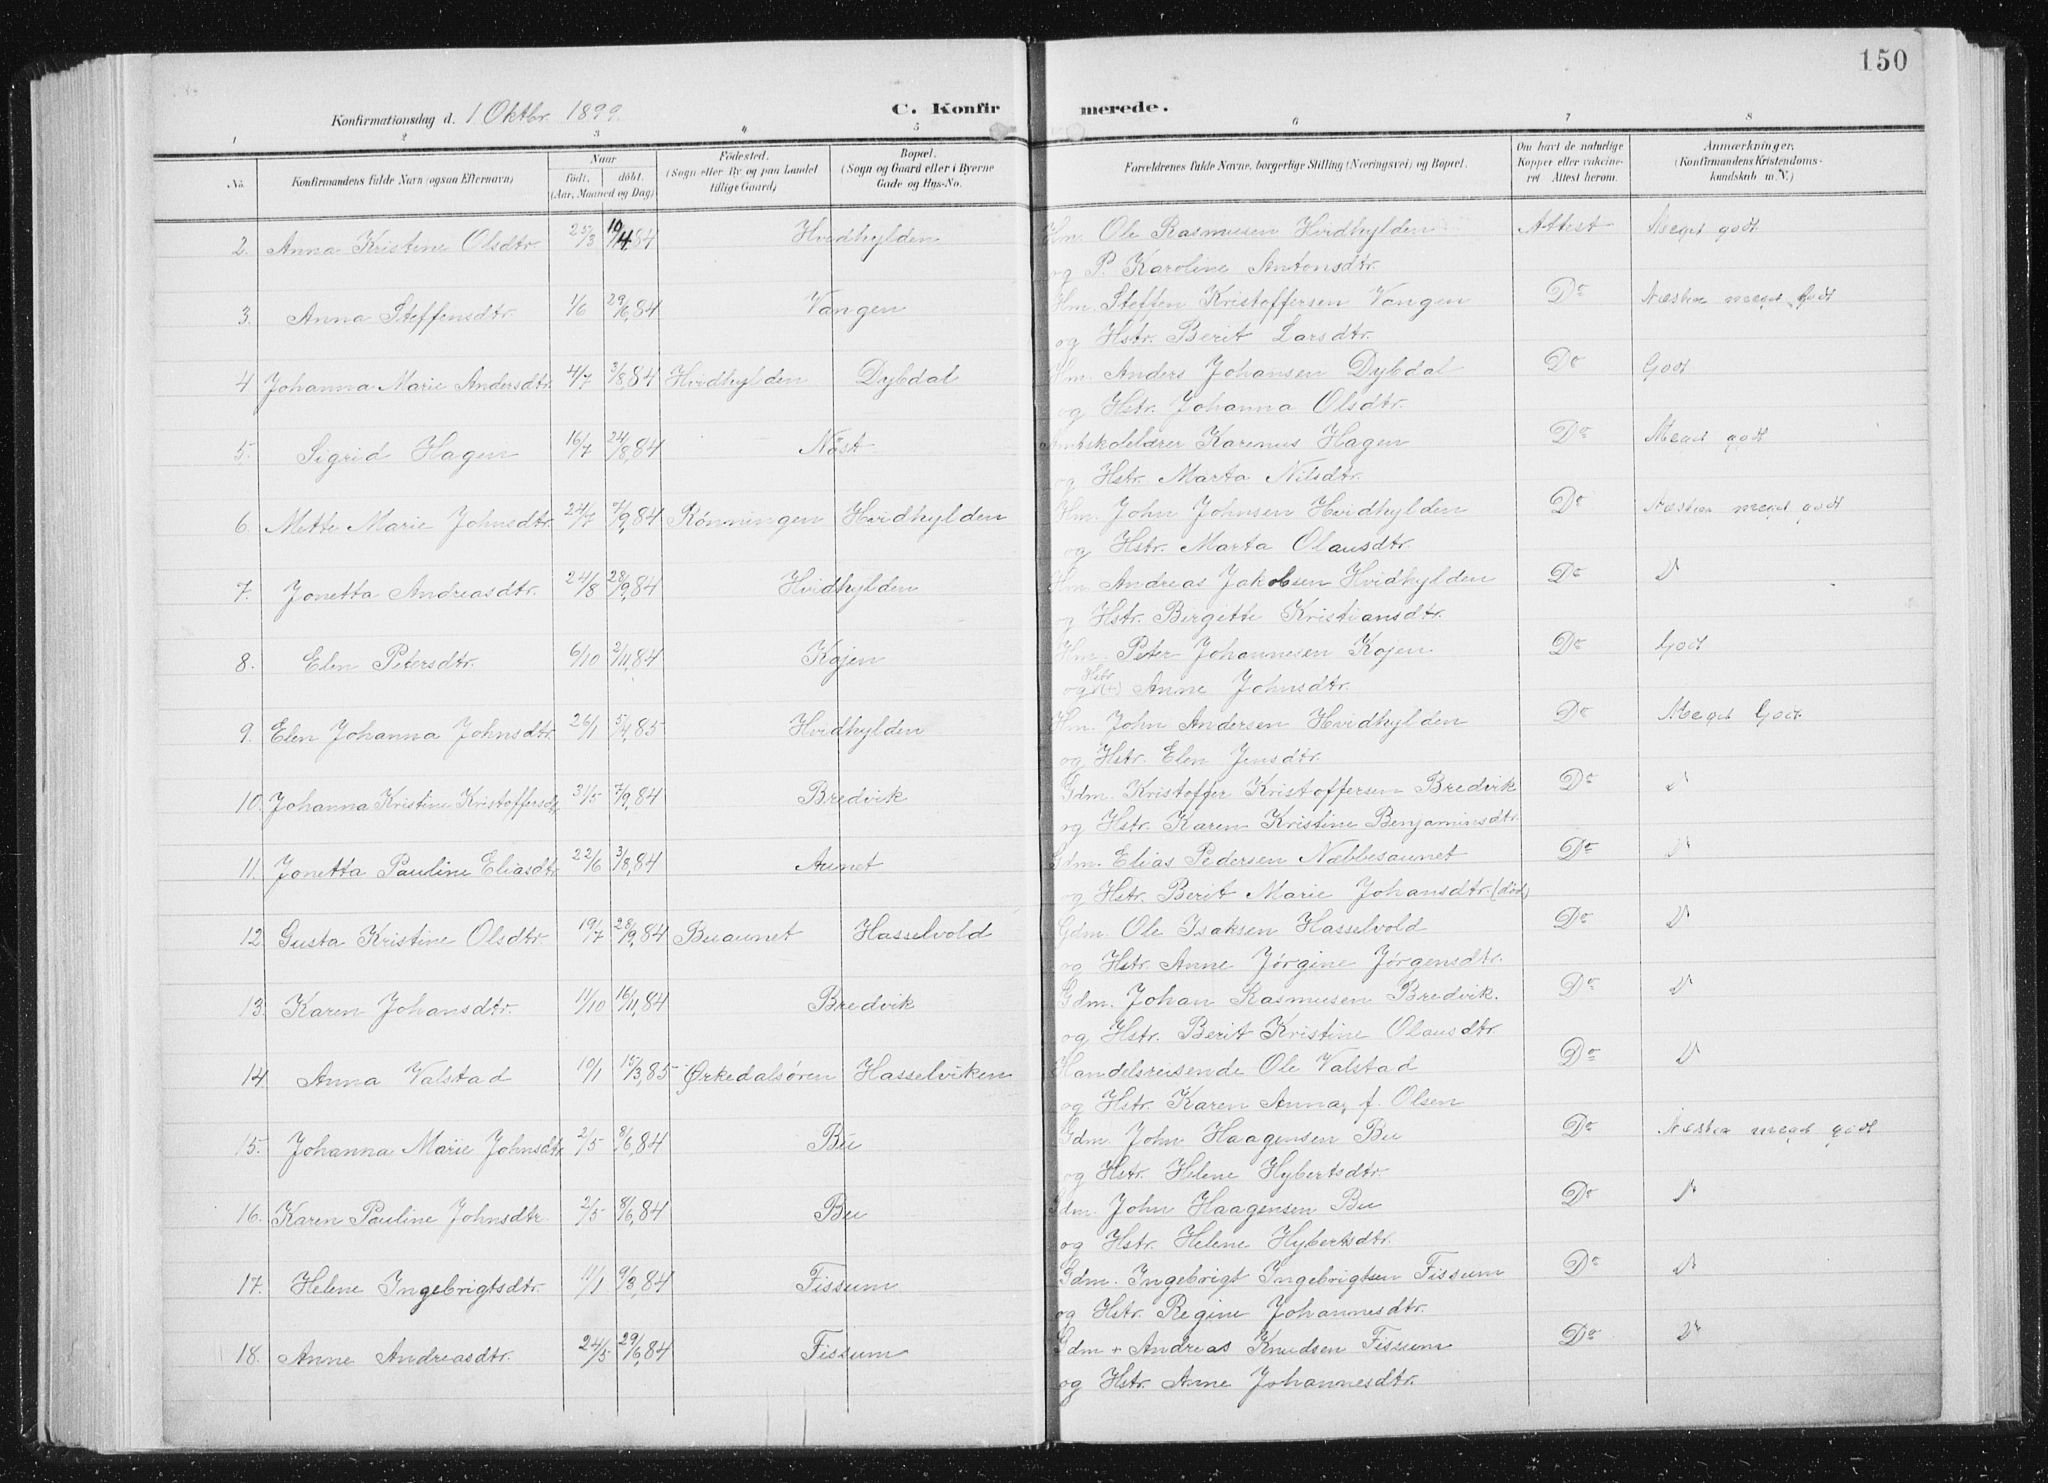 150
Konfirmationsdag d. 1 Oktbr. 1899. C. Konfirmerede.
1 2 3 4 5 6 7 8
No. Konfirmandens fulde Navn (ogsaa Efternavn) Naar födt. döbt. (Aar, Maaned og Dag) Födested. (Sogn eller By og paa Landet tillige Gaard) Bopæl. (Sogn og Gaard eller i Byerne Gade og Hus-No. Forældrenes fulde Navne, borgerlige Stilling (Næringsvei) og Bopæl. Om havt de naturlige Kopper eller vaccineret Attest herom. Anmærkninger. (Konfirmandens Kristendomskundskab m. V.)
2. Anna Kristine Olsdtr. 25/3 19/4 84 Hvidhylden Hm. Ole Rasmusen Hvidhylden Attest Meget godt
og P. Karoline Antonsdtr.
3. Anna Steffensdtr. 1/6 29/6,84 Vangen Hm. Steffen Kristoffersen Vangen Do Næsten meget Godt
og Hstr. Berit Larsdtr.
4 Johanna Marie Andersdtr. 4/7 3/8,84 Hvidhylden Dybdal Hm. Anders Johansen Dybdal Do Godt
og Hstr. Johanna Olsdtr.
5. Sigrid Hagen 16/7 24/8,84 Nöst Amtskolelærer Karenus Hagen Do Meget godt
og Hstr. Marta Nilsdtr.
6. Mette Marie Johnsdtr. 24/7 7/9,84 Rönningen Hvidhylden Hm. John Johnsen Hvidhylden Do Næsten meget godt
og Hstr. Marta Olausdtr.
7. Jonetta Andreasdtr. 24/8 28/9,84 Hvidhylden Hm. Andreas Jakobsen Hvidhylden Do D
og Hstr. Bergitte Kristiansdtr.
8. Elen Petersdtr. 6/10 2/11,84 Kojen Hm. Peter Johannesen Kojen Do Godt
og Hstr (+) Anne Johnsdtr.
9. Elen Johanna Johnsdtr. 26/1 5/4,85 Hvidhylden Hm. John Andersen Hvidhylden Do Meget Godt
og Hstr. Elen Jensdtr.
10. Johanna Kristine Kristoffersdtr. 31/5 7/9,84 Bredvik Gdm. Kristoffer Kristoffersen Bredvik Do D
og Hstr. Karen Kristine Benjaminsdtr.
11. Jonetta Pauline Eliasdtr. 22/6 3/8,84 Aunet Gdm. Elias Pedersen Næbbesaunet Do D
og Hstr. Berit Marie Johansdtr. (död)
12. Gusta Kristine Olsdtr. 19/7 28/9,84 Buaunet Hasselvold Gdm. Ole Isaksen Hasselvold Do D
og Hstr. Anne Jörgine Jörgensdtr.
13. Karen Johansdtr. 11/10 16/11,84 Bredvik Gdm. Johan Rasmusen Bredvik. Do D
og Hstr. Berit Kristine Olausdtr.
14. Anna Valstad 10/1 15/3,85 Ørkedalsören Hasselviken Handelsreisende Ole Valstad Do D
og Hstr. Karen Anna, f. Olsen
15. Johanna Marie Johnsdtr. 2/5 8/6,84 Bu Gdm. John Haagensen Bu Do Næsten meget godt
og Hstr. Helene Hybertsdtr.
16. Karen Pauline Johnsdtr. 2/5 8/6,84 Bu Gdm. John Haagensen Bu Do D
og Hstr. Helene Hybertsdtr.
17. Helene Ingebrigtsdtr. 11/1 9/3,84 Fissum Gdm. Ingebrigt Ingebrigtsen Fissum Do D
og Hstr. Regine Johannesdtr.
18. Anne Andreasdtr. 24/5 29/6,84 Fissum Gdm + Andreas Knudsen Fissum Do D
og Hstr. Anne Johannesdtr.